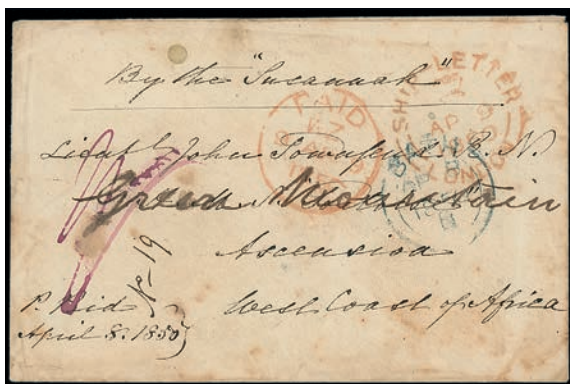 By the "Susannah"
PAID
SHIP LETTER
Lieut. John Townsend R.N.
Green Mountain
Ascension
West Coast of Africa
No 19
P. Paid
April 8. 1850